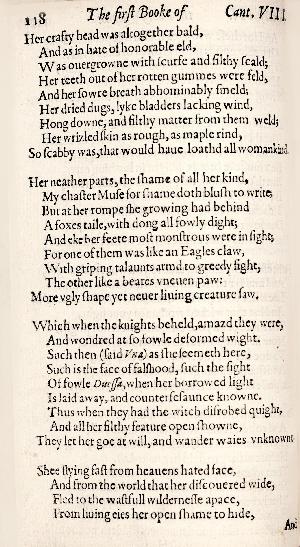 118 The first Booke of Cant. VIII.
Her crafty head was altogether bald,
And as in hate of honorable eld,
Was ouergrowne with scurfe and filthy scald;
Her teeth out of her rotten gummes were feld,
And her sowre breath abhominably smeld;
Her dried dugs, lyke bladders lacking wind,
Hong downe, and filthy matter from them weld;
Her wrizled skin as rough, as maple rind,
So scabby was, that would haue loathd all womankind.
Her neather parts, the shame of all her kind,
My chaster Muse for shame doth blush to write;
But at her rompe she growing had behind
A foxes taile, with dong all fowly dight;
And eke her feete most monstrous were in sight;
For one of them was like an Eagles claw,
With griping talaunts armd to greedy fight,
The other like a beares vneuen paw:
More vgly shape yet neuer liuing creature saw.
Which when the knights beheld, amazd they were,
And wondred at so fowle deformed wight.
Such then (said Vna) as she seemeth here,
Such is the face of falshood, such the sight
Of fowle Duessa, when her borrowed light
Is laid away, and counterfesaunce knowne.
Thus when they had the witch disrobed quight,
And all her filthy feature open showne,
They let her goe at will, and wander waies vnknowne
Shee flying fast from heauens hated face,
And from the world that her discouered wide,
Fled to the wastfull wildernesse apace,
From liuing eies her open shame to hide,
And